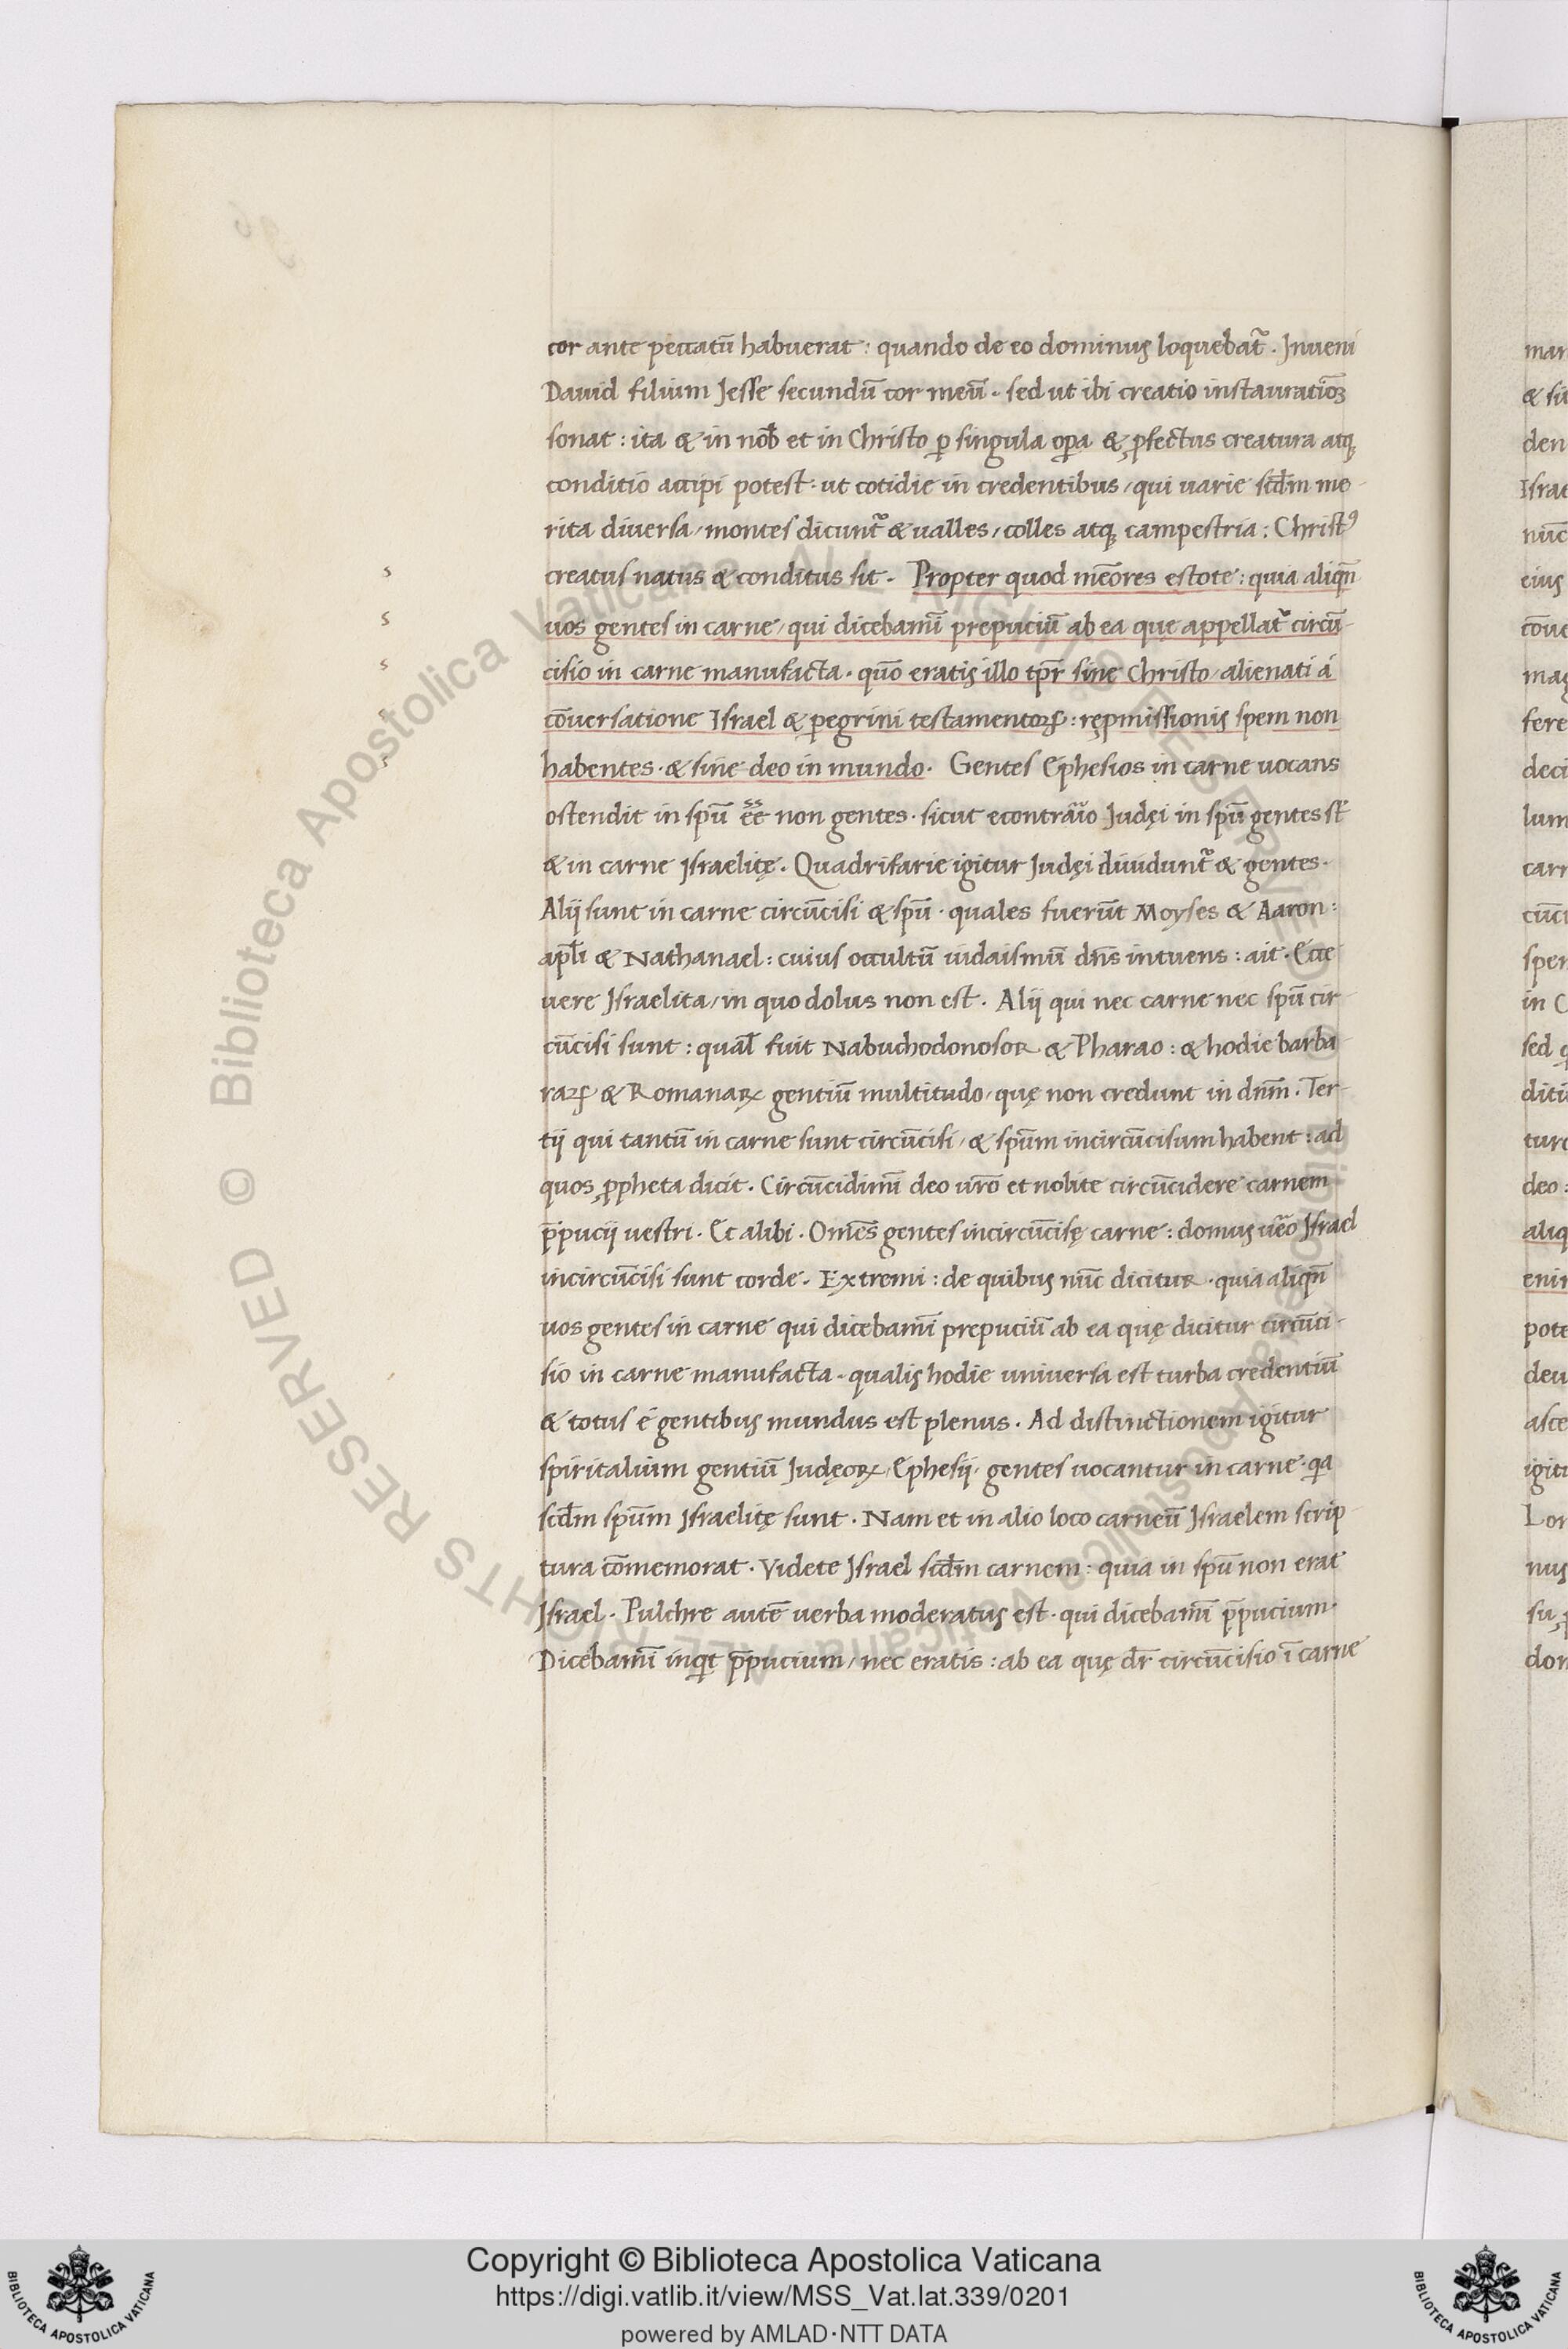 cor ante peccatū habuerat: quando de eo dominus loquebat᷑. Inueni
Dauid filium Jesse secundū cor meū. sed ut ibi creatio instauratiōꝫ
sonat: ita & in nob̄ et in Christo ꝑ singula oꝑa & ꝓfectus creatura atqꝫ
conditio accipi potest: ut cotidie in credentibus / qui uarie scd̄m me-
rita diuersa / montes dicunt᷑ & ualles / colles atqꝫ campestria: Christꝰ
s creatus natus & conditus sit. Propter quod mēores estote: quia aliqn̄
s uos gentes in carne / qui dicebamī prepuciū ab ea quę appellat᷑ circū-
s cisio in carne manufacta. quō eratis illo tpr̄ sine Christo / alienati á
s cōuersatione Israel & ꝑegrini testamentoꝝ: repmissionis spem non
s habentes. & sine deo in mundo. Gentes Ephesios in carne uocans
ostendit in spū ēē non gentes. sicut econtrario Judęi in spū gentes st̄
& in carne Israelitę. Quadrifarie igitur Judęi diuidunt᷑ & gentes.
Alij sunt in carne circūcisi & spū. quales fuerūt Moyses & Aaron:
apl̄i & Nathanael: cuius occultū iudaismū dn̄s intuens: ait. Ecce
uere Israelita / in quo dolus non est. Alij qui nec carne nec spū cir-
cūcisi sunt: qual̄ fuit Nabuchodonosor & Pharao: & hodie barba-
raꝝ & Romanaꝝ gentiū multitudo / quę non credunt in dn̄m. Ter-
tij qui tantū in carne sunt circūcisi / & spūm incircūcisum habent: ad
quos ꝓpheta dicit. Circūcidimī deo uṝo et nolite circūcidere carnem
p̄pucij uestri. Et alibi. Omēs gentes incircūcisę carne: domus uēo Israel
incircūcisi sunt corde. Extremi: de quibus nūc dicitur. quia aliqn̄
uos gentes in carne qui dicebamī prepuciū ab ea quę dicitur circūci-
sio in carne manufacta. qualis hodie uniuersa est turba credentiū
& totus é gentibus mundus est plenus. Ad distinctionem igitur
spiritalium gentiū Judęoꝝ / Ephesij / gentes uocantur in carne. qa
scd̄m spūm Israelitę sunt. Nam et in alio loco carneū Israelem scrip-
tura cōmemorat. Videte Israel scd̄m carnem: quia in spū non erat
Israel. Pulchre autē uerba moderatus est. qui dicebamī p̄pucium.
Dicebamī inqt p̄pucium / nec eratis: ab ea quę dr̄ circūcisio ī carne
Copyright © Biblioteca Apostolica Vaticana
https://digi.vatlib.it/view/MSS_Vat.lat.339/0201
powered by AMLAD·NTT DATA
BIBLIOTECA APOSTOLICA VATICANA
BIBLIOTECA APOSTOLICA VATICANA
© Biblioteca Apostolica Vaticana ALL RIGHTS RESERVED
© Biblioteca Apostolica Vaticana ALL RIGHTS RESERVED